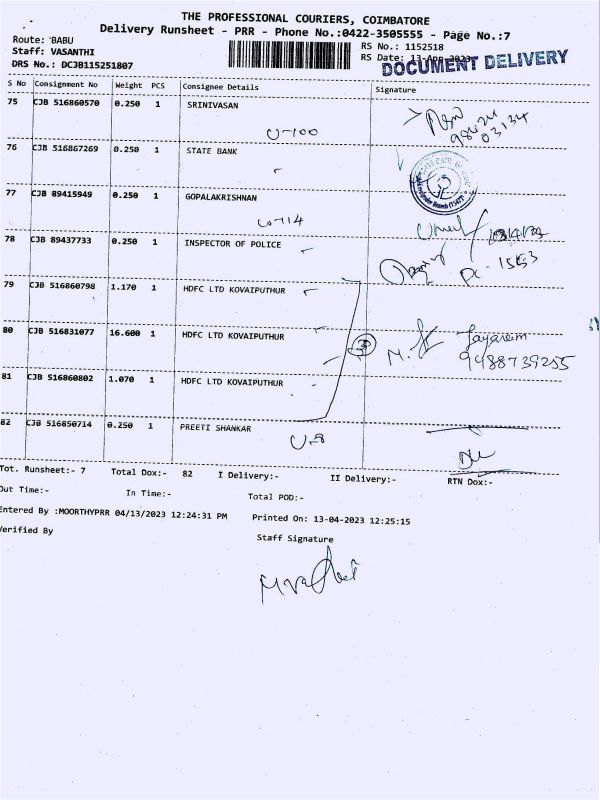 THE PROFESSIONAL COURIERS, COIMBATORE
Delivery Runsheet - PRR - Phone No.:0422-3505555 - Page No.:7
Route: BABU
Staff: VASANTHI
DRS No.: DCJB115251807
RS No.: 1152518
RS Date: 13-Apr-2023
DOCUMENT DELIVERY
S No Consignment No Weight PCS Consignee Details Signature
75 CJB 516860570 0.250 1 SRINIVASAN
U-100
03134
76 CJB 516867269 0.250 1 STATE BANK
77 CJB 89415949 0.250 1 GOPALAKRISHNAN
78 CJB 89437733 0.250 1 INSPECTOR OF POLICE
79 CJB 516860798 1.170 1 HDFC LTD KOVAIPUTHUR
80 CJB 516831077 16.600 1 HDFC LTD KOVAIPUTHUR
3
Jayaram
9488739255
81 CJB 516860802 1.070 1 HDFC LTD KOVAIPUTHUR
82 CJB 516850714 0.250 1 PREETI SHANKAR
U-8
Tot. Runsheet:- 7 Total Dox:- 82 I Delivery:- II Delivery:- RTN Dox:-
Out Time:- In Time:- Total POD:-
Entered By :MOORTHYPRR 04/13/2023 12:24:31 PM Printed On: 13-04-2023 12:25:15
Verified By Staff Signature